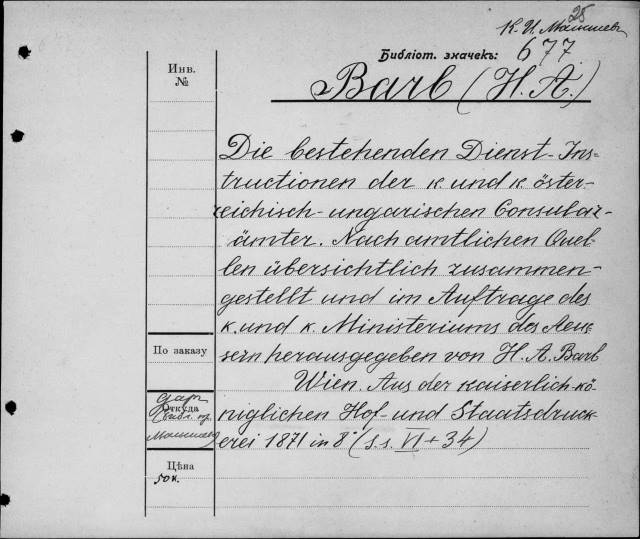 25
К. И. Малышев
Библіот. значекъ: 677
Barb (H. A.)
Инв.
№
Die bestehenden Dienst-Ins=
tructionen der k. und k. öster-
reichisch-ungarischen Consular-
ämter. Nach amtlichen Quel-
len übersichtlich zusammen-
gestellt und im Auftrage des
k. und k. Ministeriums des Aeus
sern herausgegeben von H. A. Barb
Wien. Aus der kaiserlich-kö-
niglichen Hof- und Staatsdruck-
erei 1871 in 8° (S.s. VI + 34)
По заказу
даръ
Откуда
Малышев
Цѣна
50 к.